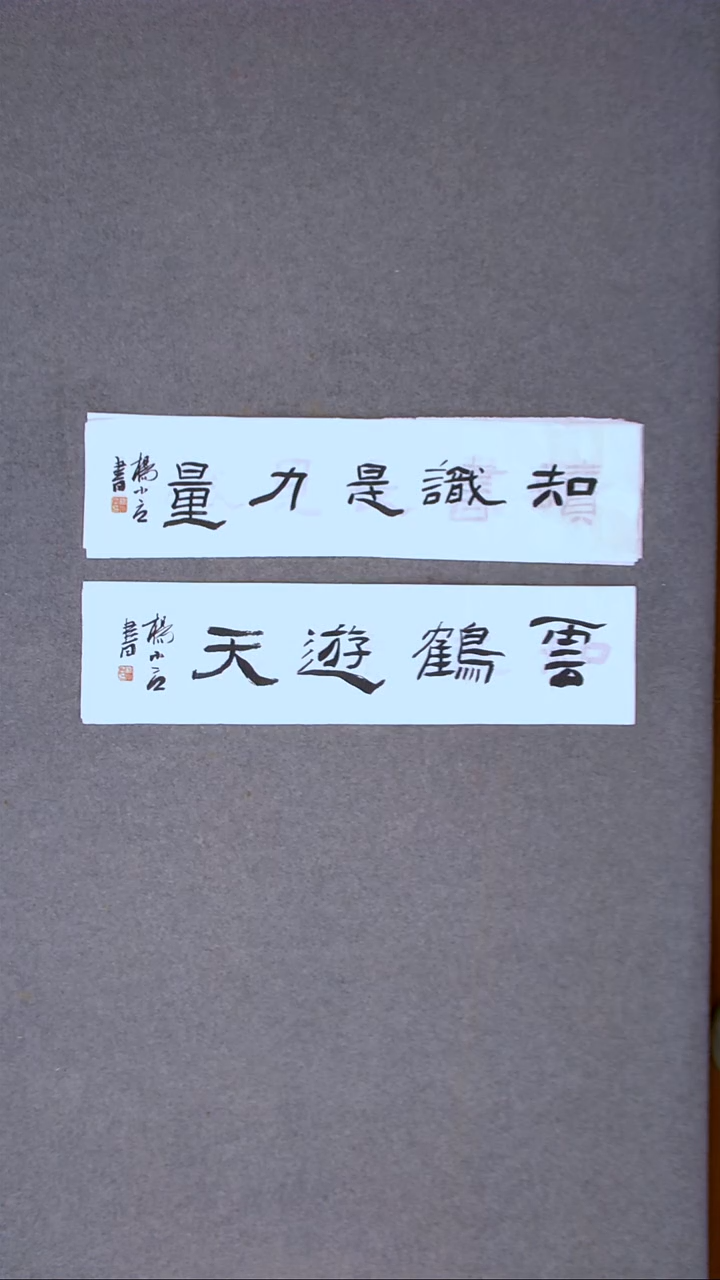 知識是力量
楊小言書
雲鶴遊天
楊小言書